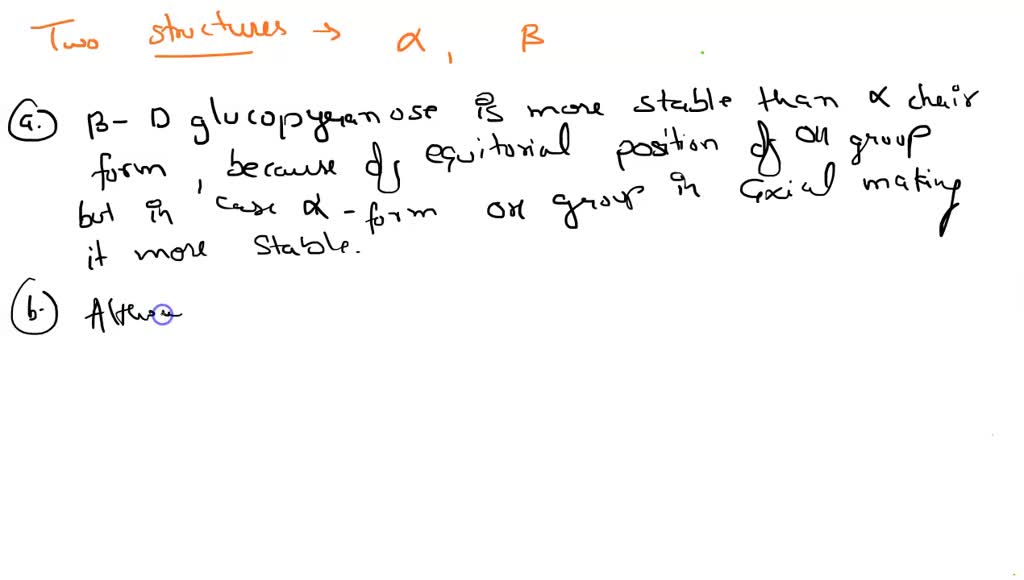 Two structures → α, β
a. β- D glucopyranose is more stable than α chair
form, because of equitorial position of OH group
but in case α-form OH group in axial making
it more stable.
b.